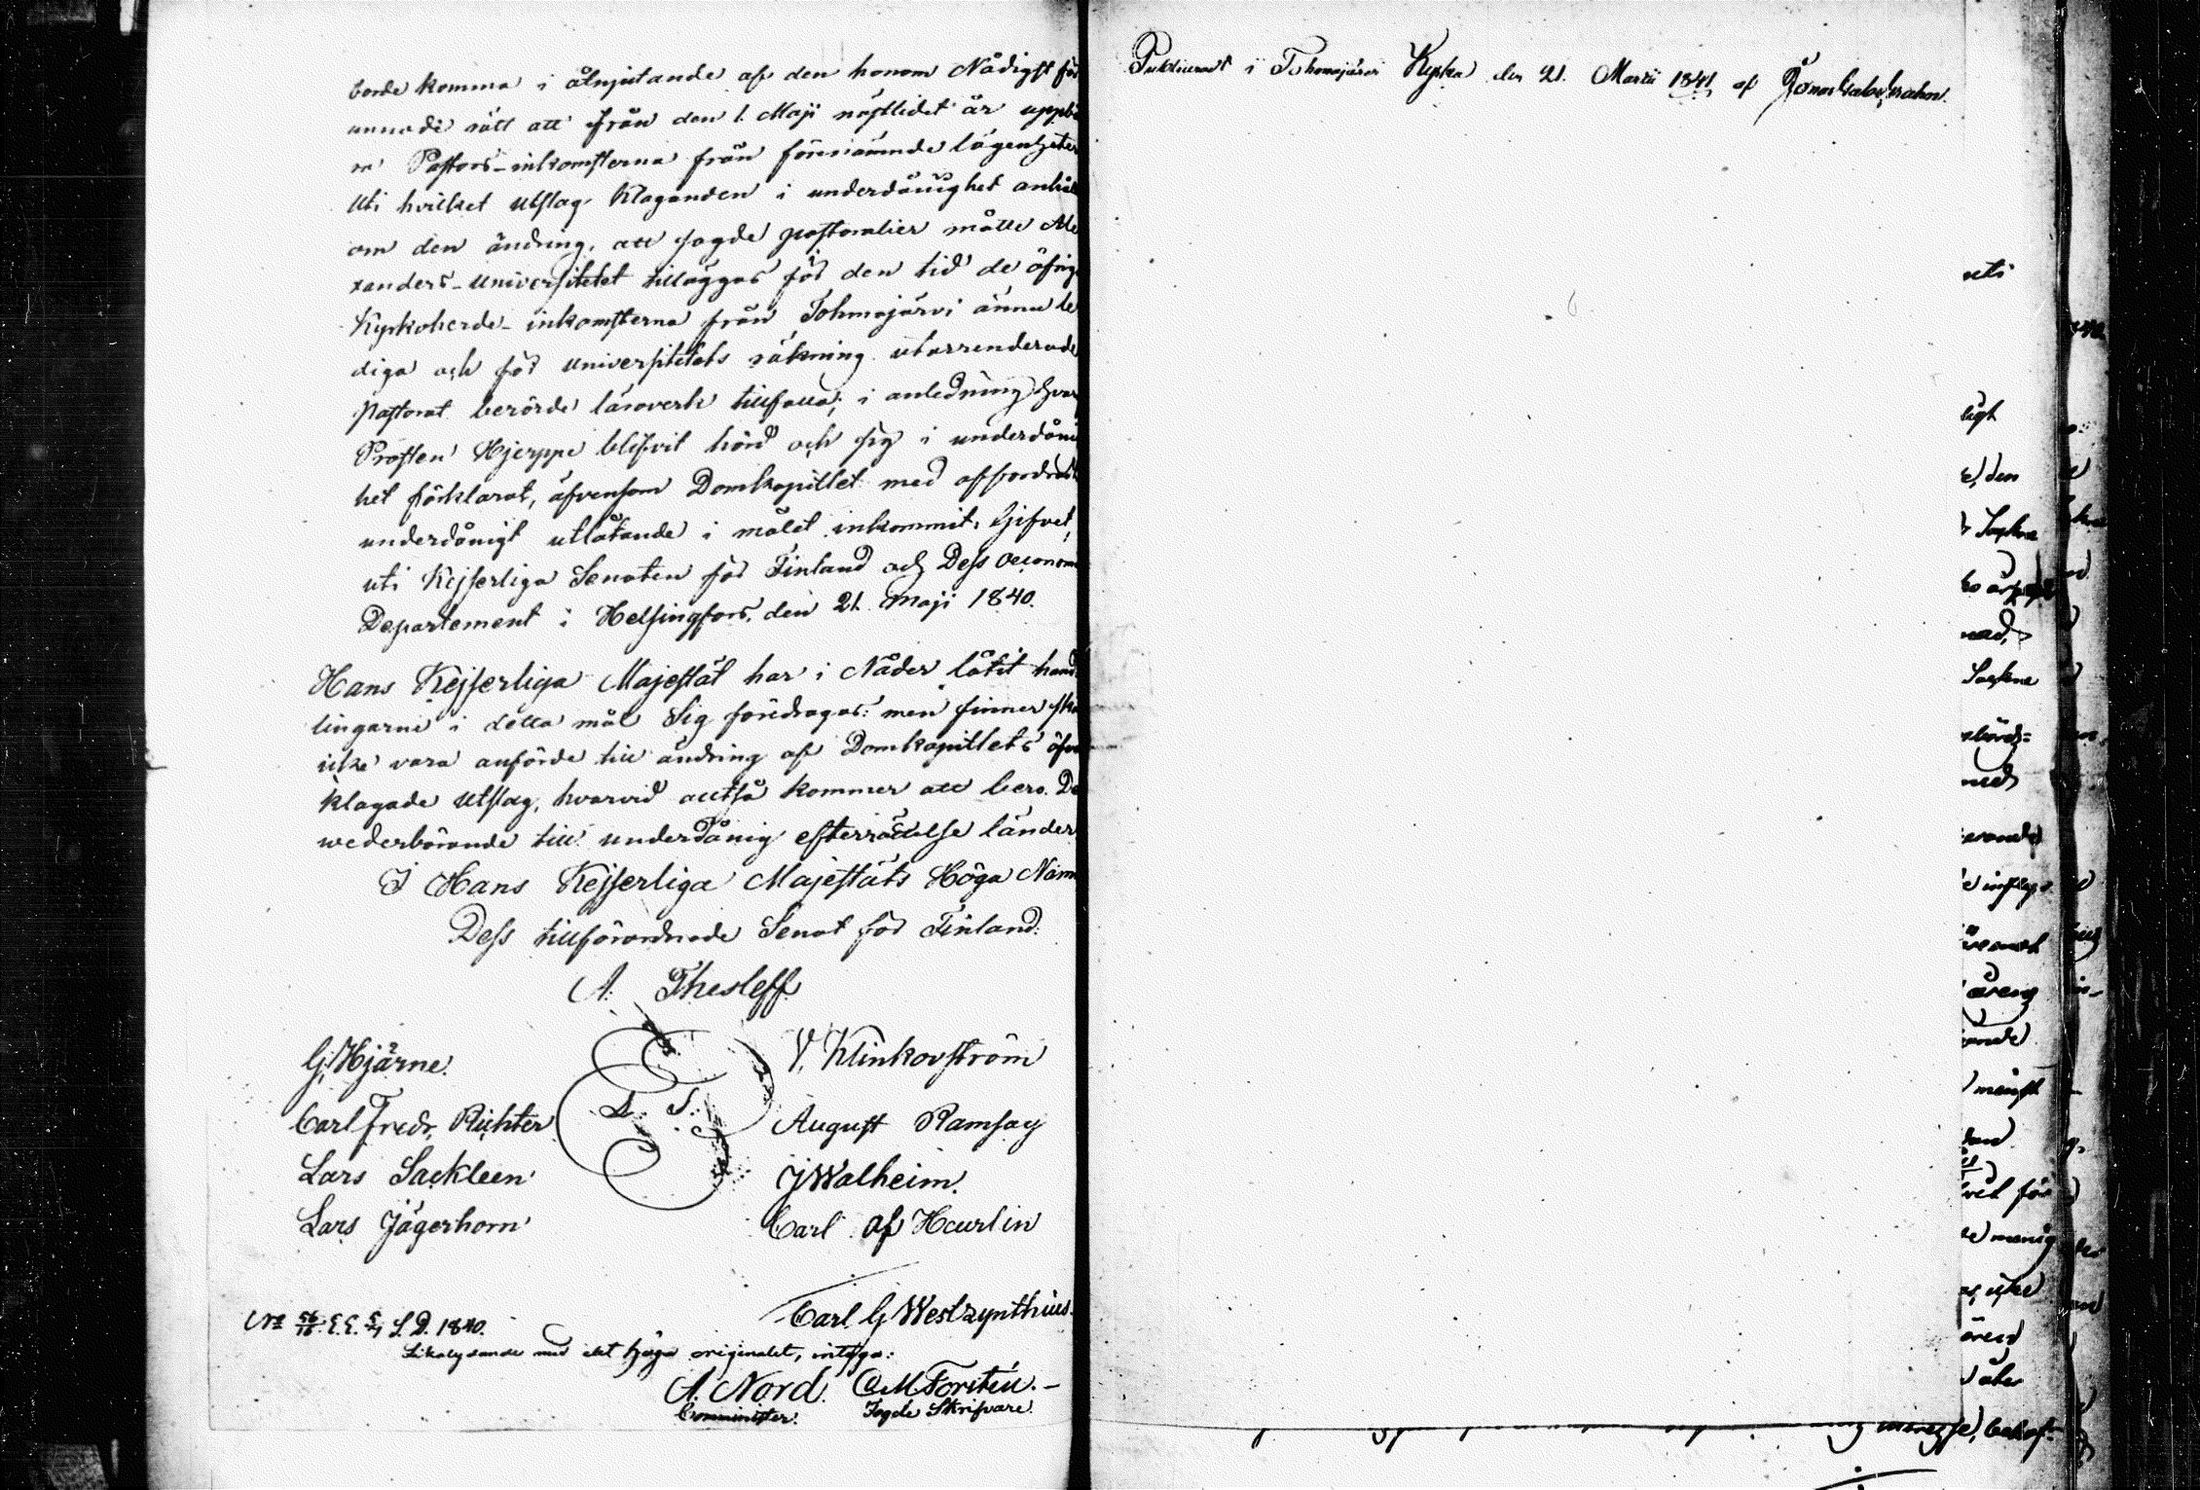 borde komma i åtnjutande af den honom Nådigst för
unnade rätt att från den 1. Maji nästlidet år uppbä
ra Pastors-inkomsterna från förenämnde lägenheter
Uti hvilket utslag Klaganden i underdånighet anhål
om den ändring, att sagde pastoralier måtte Ale
xanders-Universitetet tilläggas för den tid de öfrig
Kyrkoherde-inkomsterna från Tohmajärvi ännu le
diga och för universitetets räkning utarrenderade
Pastorat berörde läroverk tillfalla; i anledning hvar
Prosten Hjerppe blifvit hörd och sig i underdåni
het förklarat, äfvensom Domkapitlet med affordradt
underdånigt utlåtande i målet inkommit; Gifvet,
uti Kejserliga Senaten för Finland och Dess Oeconom
Departement i Helsingfors, den 21. Maji 1840.
Hans Kejserliga Majestät har i Nåder låtit hand
lingarne i detta mål Sig föredragas: men finner skä
icke vara anförde till ändring af Domkapitlets öfve
klagade Utslag, hvarvid alltså kommer att bero. De
wederbörande till underdånig efterrättelse länder
I Hans Kejserliga Majestäts Höga Namn
Dess tillförordnade Senat för Finland:
A. Thesleff
G. Hjärne.
V. Klinkovström
L. S.
Carl Fredr. Richter
August Ramsay
Lars Sackleen
J Walheim.
Lars Jägerhorn
Carl af Haurlin
Carl G Westzynthius.
S. D. 1840.
Likalydande med det höga originalet, intyga:
A. Nord. C M Forstén.-
Comminister. Fogde Skrifvare.
Publiceradt i Tohmajärvi Kyrka den 21. Martii 1841 af
uti
den
Sockne
med
Sockne
med
för
icke